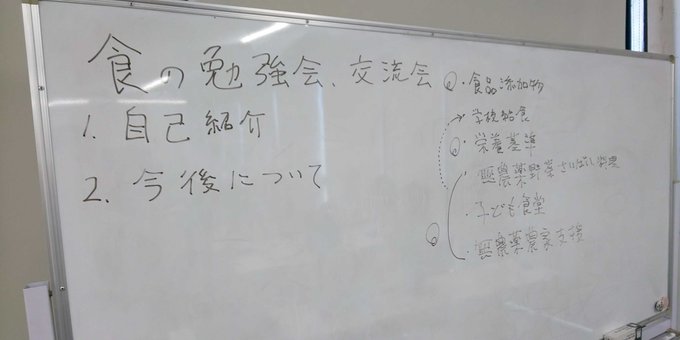 食の勉強会、交流会
1. 自己紹介
2. 今後について
・食品添加物
・学校給食
・栄養基準
・無農薬野菜さいばい、料理
・子ども食堂
・無農薬農家支援